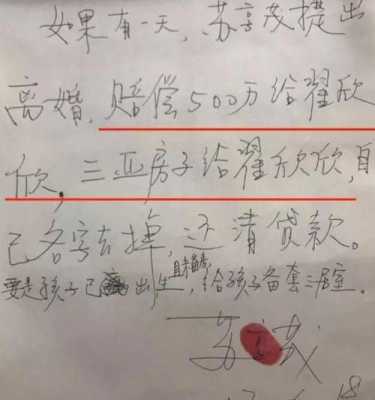 如果有一天,苏享茂提出
离婚,赔偿500万给翟欣
欣,三亚房子给翟欣欣,自
己名字去掉,还清贷款。
要是孩子已出生,给孩子备套三居室。
苏享茂